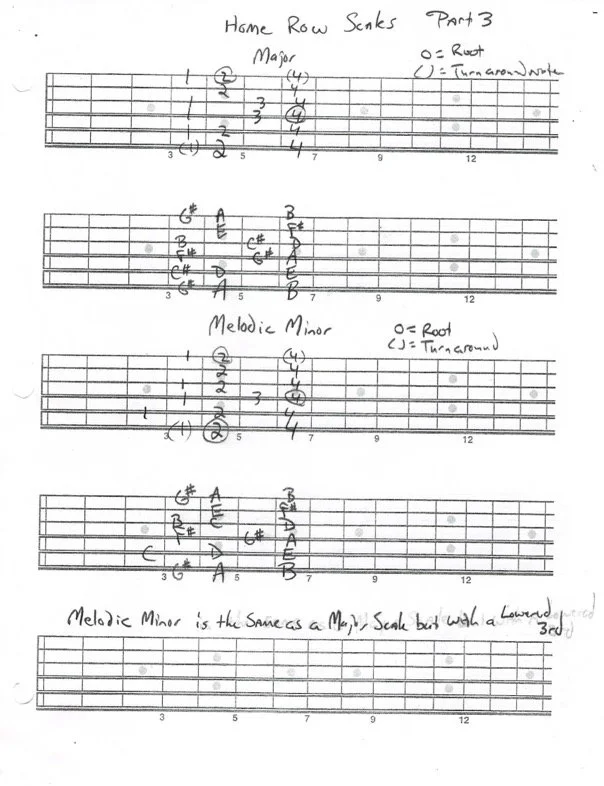 Home Row Scales Part 3
Major
O = Root
( ) = Turnaround notes
1 (2) (4)
2 4
1 3 4
1 3 (4)
1 2 4
(1) 2 4
3 5 7 9 12
G# A B
E F#
B C# D
F# G# A
C# D E
G# A B
3 5 7 9 12
Melodic Minor
O = Root
( ) = Turnaround
1 (2) (4)
2 4
1 2 4
1 3 (4)
1 2 4
(1) (2) 4
3 5 7 9 12
G# A B
E F#
B C D
F# G# A
C D E
G# A B
3 5 7 9 12
Melodic Minor is the same as a Major Scale but with a Lowered
3rd
3 5 7 9 12